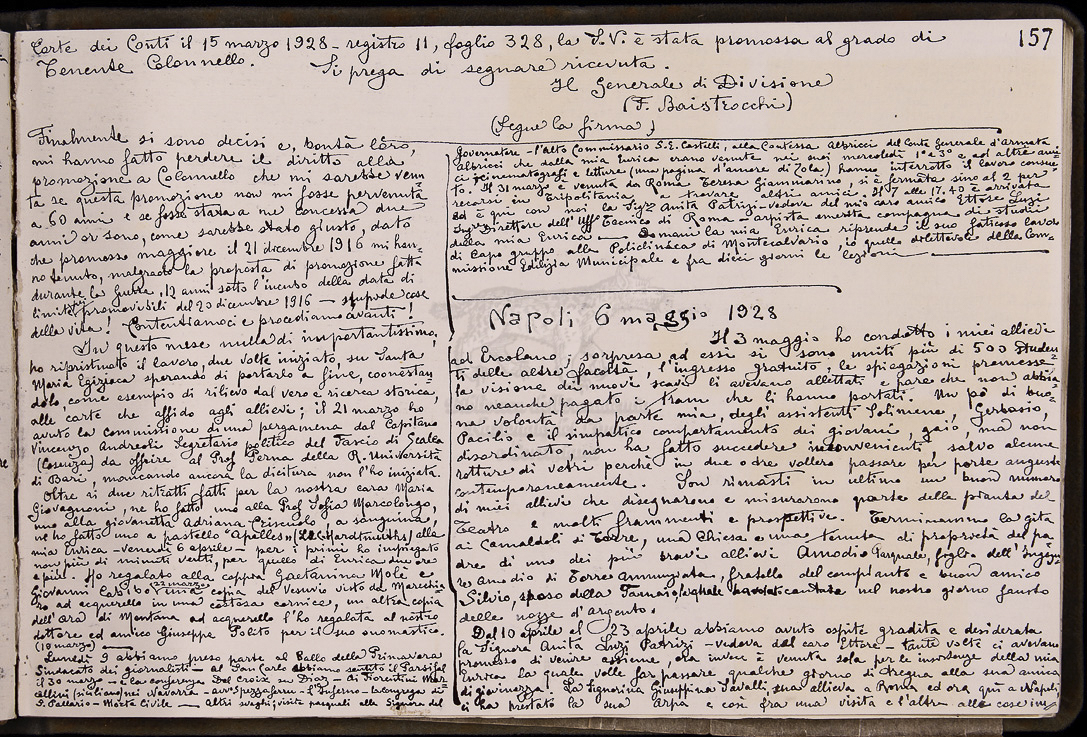 157
Corte dei Conti il 15 marzo 1928 - registro 11, foglio 328, la S.V. è stata promossa al grado di
Tenente Colonnello. Si prega di segnare ricevuta.
Il Generale di Divisione
(F. Baistrocchi)
(Segue la firma)
Finalmente si sono decisi e, bontà loro,
mi hanno fatto perdere il diritto alla
promozione a Colonnello che mi sarebbe venu
ta se questa promozione non mi fosse pervenuta
a 60 anni e se fosse stata a me concessa due
anni or sono, come sarebbe stato giusto, dato
che promosso maggiore il 21 dicembre 1916 mi han-
no tenuto, malgrado la proposta di promozione fatta
durante la guerra, 12 anni sotto l'incubo della data di
limite promovibili del 20 dicembre 1916 - stupide cose
della vita! Contentiamoci e procediamo avanti!
In questo mese nulla di importantissimo,
ho ripristinato il lavoro, due volte iniziato, su Santa
Maria Egiziaca sperando di portarlo a fine, coonestan-
dolo come esempio di rilievo dal vero e ricerca storica,
alle carte che affido agli allievi; il 21 marzo ho
avuto la commissione di una pergamena dal Capitano
Vincenzo Andreoli Segretario politico del Fascio di Scalea
(Cosenza) da offrire al Prof Perna della R. Università
di Bari, mancando ancora la dicitura non l'ho iniziata.
Oltre ai due ritratti fatti per la nostra cara Maria
Giovagnoni, ne ho fatto uno alla Prof Sofia Marcolongo,
uno alla giovanetta Adriana Criscuolo, a sanguina,
ne ho fatto uno a pastello "Apelles" (L&C Hardtmuth) alla
mia Enrica - venerdì 6 aprile - per i primi ho impiegato
non più di minuti venti, per quello di Enrica due ore
e più. Ho regalato alla coppia Gaetanina Molè e
Giovanni Calabò 22 marzo una copia del Vesuvio visto da
ro ad acquerello in una costosa cornice, un altra copia
dell'Ora di Mentana ad acquerello l'ho regalata al nostro
dottore ed amico Giuseppe Polito per il suo onomastico.
(19 marzo)
Lunedì 9 abbiamo preso parte al Ballo della Primavera
Sindacato dei giornalisti - al San Carlo abbiamo sentito il Parsifal
il 30 marzo e la conferenza Del Croix su Diaz - di Fiorentini
(siciliano) nei Navarra - l'Inferno - la congrega di
S. - Morte Civile - Altri svaghi; visite pasquali alla Signora del
Governatore - l'alto Commissario S.E. Castelli, alla Contessa Albricci del Conte Generale d'armata
Albricci che dalla mia Enrica erano venute nei suoi mercoledì 1° e 3° e ad altre ami-
ci; cinematografi e letture (una pagina d'amore di Zola) hanno interrotto il lavoro consue-
to. Il 31 marzo è venuta da Roma Teresa Giammarino, si è fermata sino al 2 per
recarsi in Tripolitania a trovare altri amici. Il 7 alle 17.40 è arrivata
ed è qui con noi la Sig.ra Anita Patrizi vedova del mio caro amico Ettore Luzi
Ing. Direttore dell'Uff. Tecnico di Roma - arpista emerita compagna di studii
della mia Enrica. Domani la mia Enrica riprende il suo faticoso lavoro
di Capo gruppo alla Policlinaca di Montecalvario, io quello dilettevole della Com-
missione Edilizia Municipale e fra dieci giorni le lezioni
Napoli 6 maggio 1928
Il 3 maggio ho condotto i miei allievi
ad Ercolano; sorpresa, ad essi si sono uniti più di 500 studen-
ti delle altre facoltà, l'ingresso gratuito, le spiegazioni promesse
la visione dei nuovi scavi li avevano allettati e pare che non abbia-
no neanche pagato i tram che li hanno portati. Un pò di buo-
na volontà da parte mia, degli assistenti Solimene, Gerbasio,
Pacilio e il simpatico comportamento dei giovani, gaio, ma non
disordinato, non ha fatto succedere inconvenienti, salvo alcune
rotture di vetri perchè in due o tre vollero passare per porte anguste
contemporaneamente. Son rimasti in ultimo un buon numero
di miei allievi che disegnarono e misurarono parte della pianta del
Teatro e molti frammenti e prospettive. Terminammo la gita
ai Camaldoli di Torre, una Chiesa e una tenuta di proprietà del pa-
dre di uno dei più bravi allievi Amodio Pasquale, figlio dell'Ingegn
re Amodio di Torre Annunziata, fratello del compianto e buon amico
Silvio, sposo della quale cantate nel nostro giorno fausto
delle nozze d'argento.
Dal 10 aprile al 23 aprile abbiamo avuto ospite gradita e desiderata
la Signora Anita Luzi Patrizi - vedova del caro Ettore - tante volte ci avevano
promesso di venire assieme, ora invece è venuta sola per le insistenze della mia
Enrica la quale volle far passare qualche giorno di tregua alla sua amica
di giovinezza! La Signorina Giuseppina Savalli, sua allieva a Roma ed ora qui a Napoli,
ci ha prestato la sua Arpa e così fra una visita e l'altra alle cose in